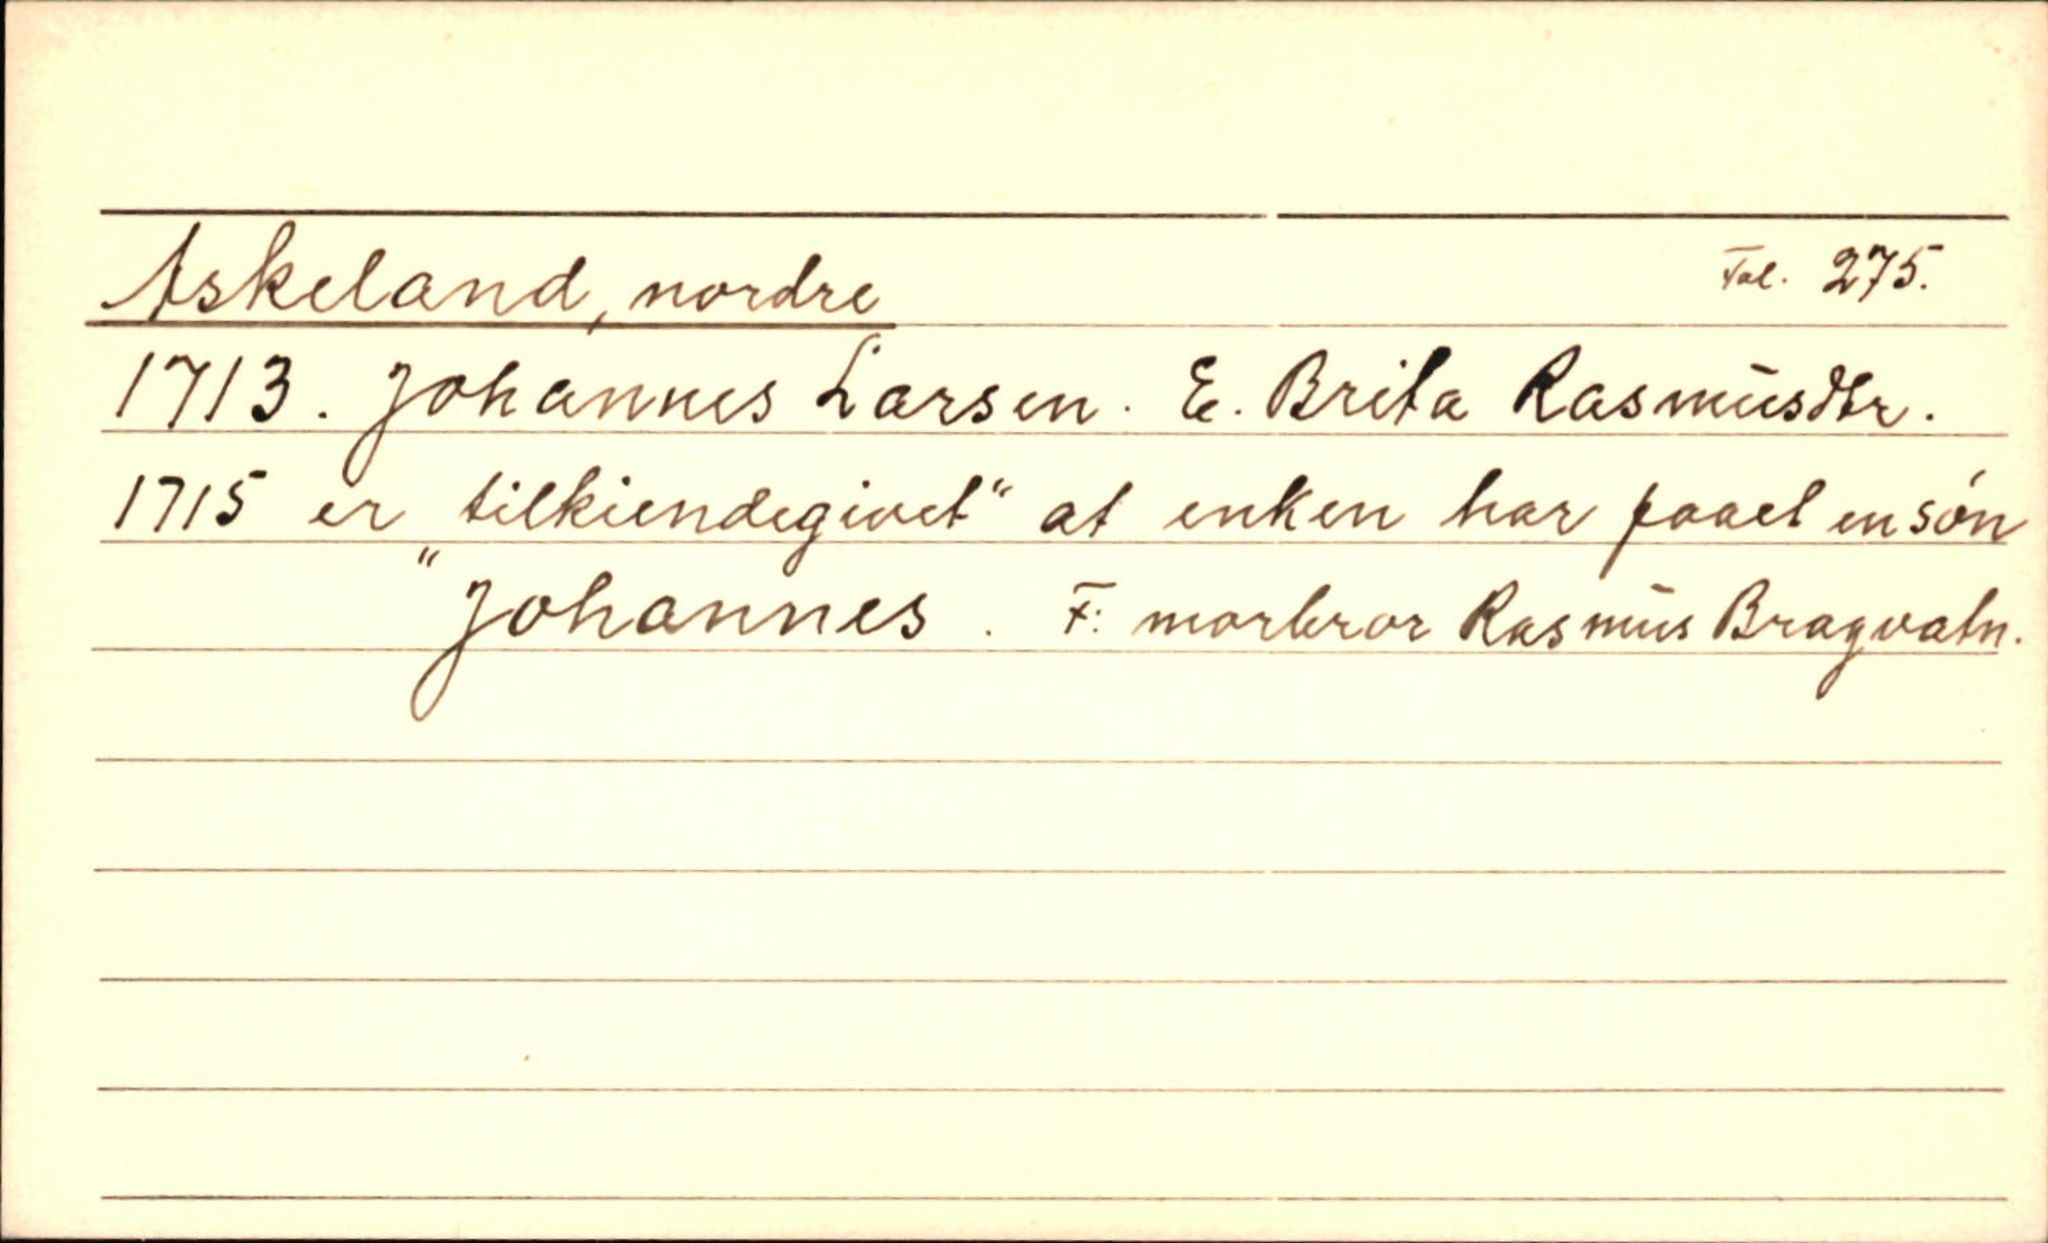 Askeland, nordre Fol. 275.
1713. Johannes Larsen. E. Brita Rasmusdtr.
1715 er "tilkiendegivet" at enken har faaet en søn
Johannes. F: morbror Rasmus Bragvatn.